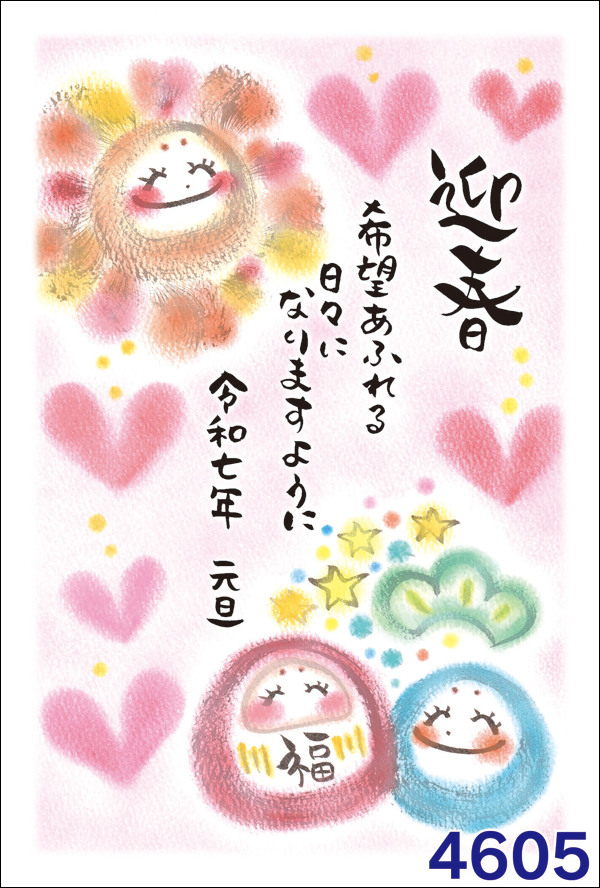 迎春
希望あふれる
日々に
なりますように
令和七年 元旦
福
4605